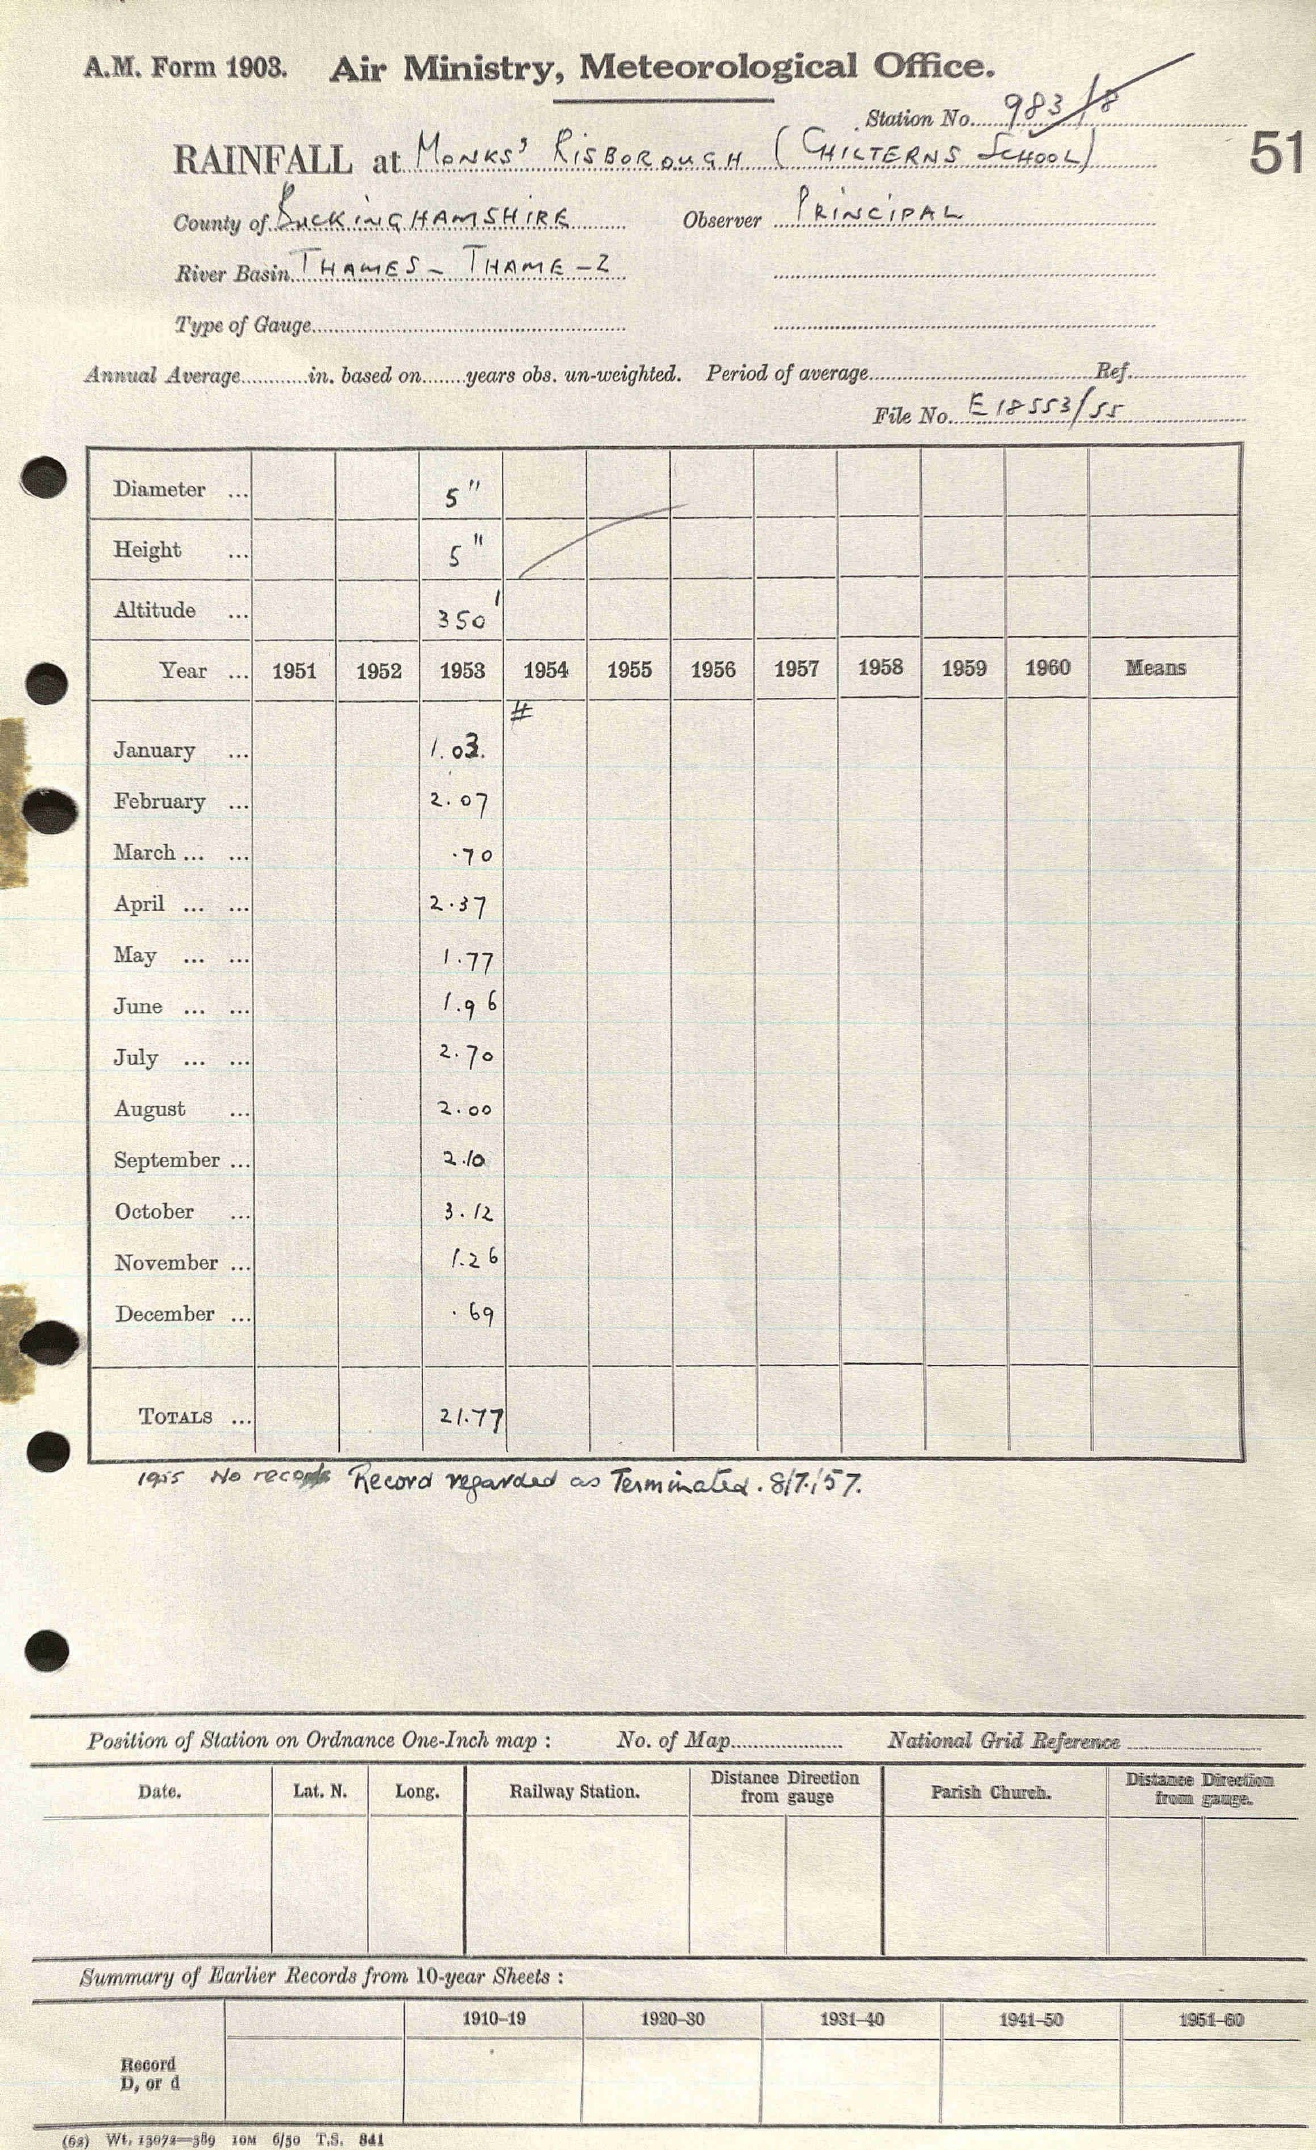 A.M. Form 1903. Air Ministry, Meteorological Office.
Station No. 983/8
51
RAINFALL at Monks' Risborough (Chilterns School)
County of Buckinghamshire Observer Principal
River Basin Thames - Thame - 2
Type of Gauge
Annual Average in. based on years obs. un-weighted. Period of average Ref.
File No. E 18553/55
Diameter ... 5"
Height ... 5"
Altitude ... 350'
Year ... 1951 1952 1953 1954 1955 1956 1957 1958 1959 1960 Means
#
January ... 1.03.
February ... 2.07
March ... ... .70
April ... ... 2.37
May ... ... 1.77
June ... ... 1.96
July ... ... 2.70
August ... 2.00
September ... 2.10
October ... 3.12
November ... 1.26
December ... .69
Totals ... 21.77
1955 No records Record regarded as Terminated. 8/7/57.
Position of Station on Ordnance One-Inch map : No. of Map National Grid Reference
Date. Lat. N. Long. Railway Station. Distance Direction from gauge Parish Church. Distance Direction from gauge.
Summary of Earlier Records from 10-year Sheets :
1910–19 1920–30 1931–40 1941–50 1951–60
Record
D, or d
(62) Wt. 13072—389 10M 6/50 T.S. 841